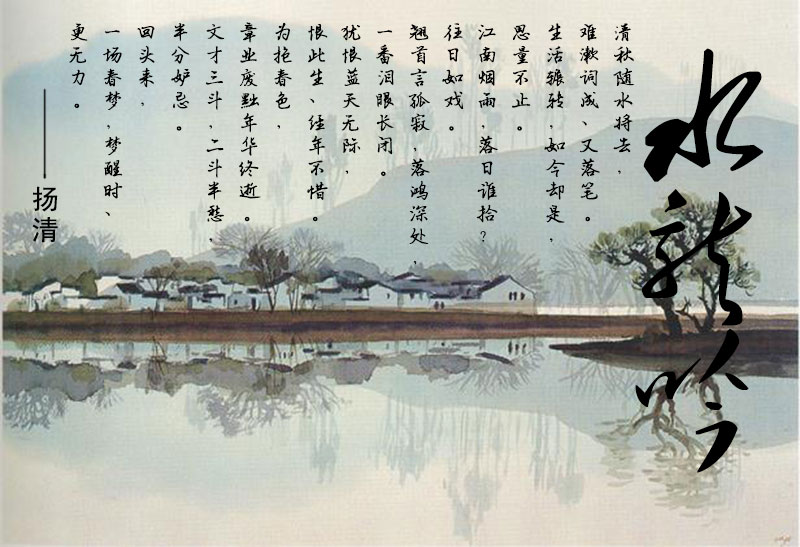 水龙吟
清秋随水将去，
难漱词成、又落笔。
生活辗转，如今却是，
思量不止。
江南烟雨，落日谁拾？
往日如戏。
翘首言孤寂，落鸿深处，
一番泪眼长闭。
犹恨蓝天无际，
恨此生、经年不惜。
为抱春色，
章业废黜年华终逝。
文才三斗，二斗半愁，
半分妒忌。
回头来，
一场春梦，梦醒时、
更无力。
——扬清